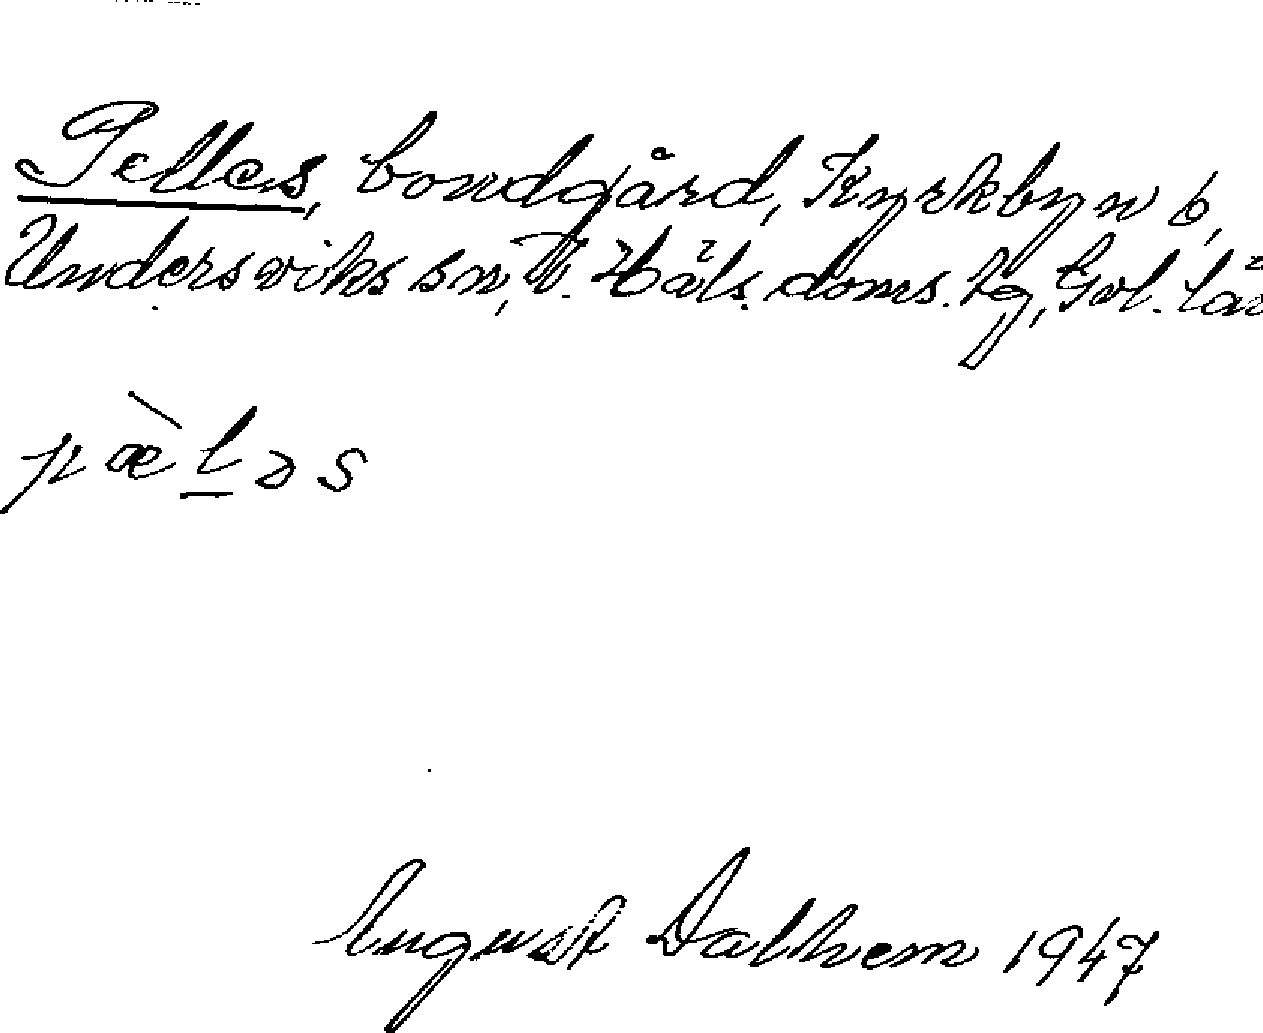 Pelles, bondgård, Kyrkbyn 6,
Undersviks sn, V. Häls. doms. tg, Gvl. län
pæ̀l̲əs
August Dalhem 1947